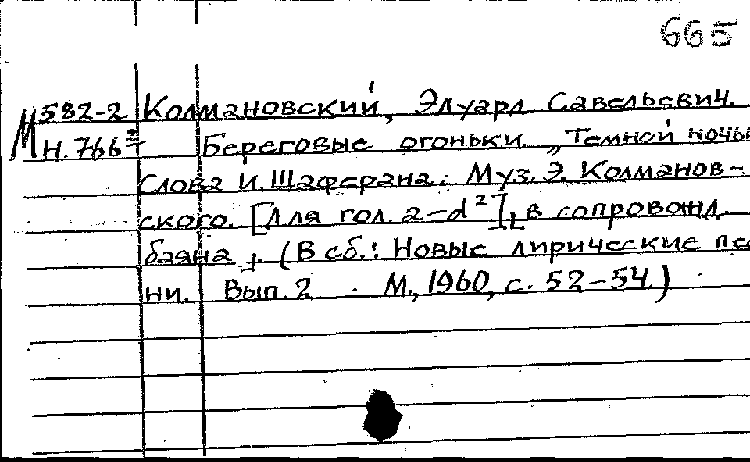 665
М 582-2 Колмановский, Эдуард Савельевич.
Н.766 Береговые огоньки. „Темной ночью
Слова И. Шаферана. Муз. Э. Колманов-
ского. [Для гол. a-d²], в сопровожд.
баяна, (В сб.: Новые лирические пес
ни. Вып. 2 . М., 1960, с. 52-54.)